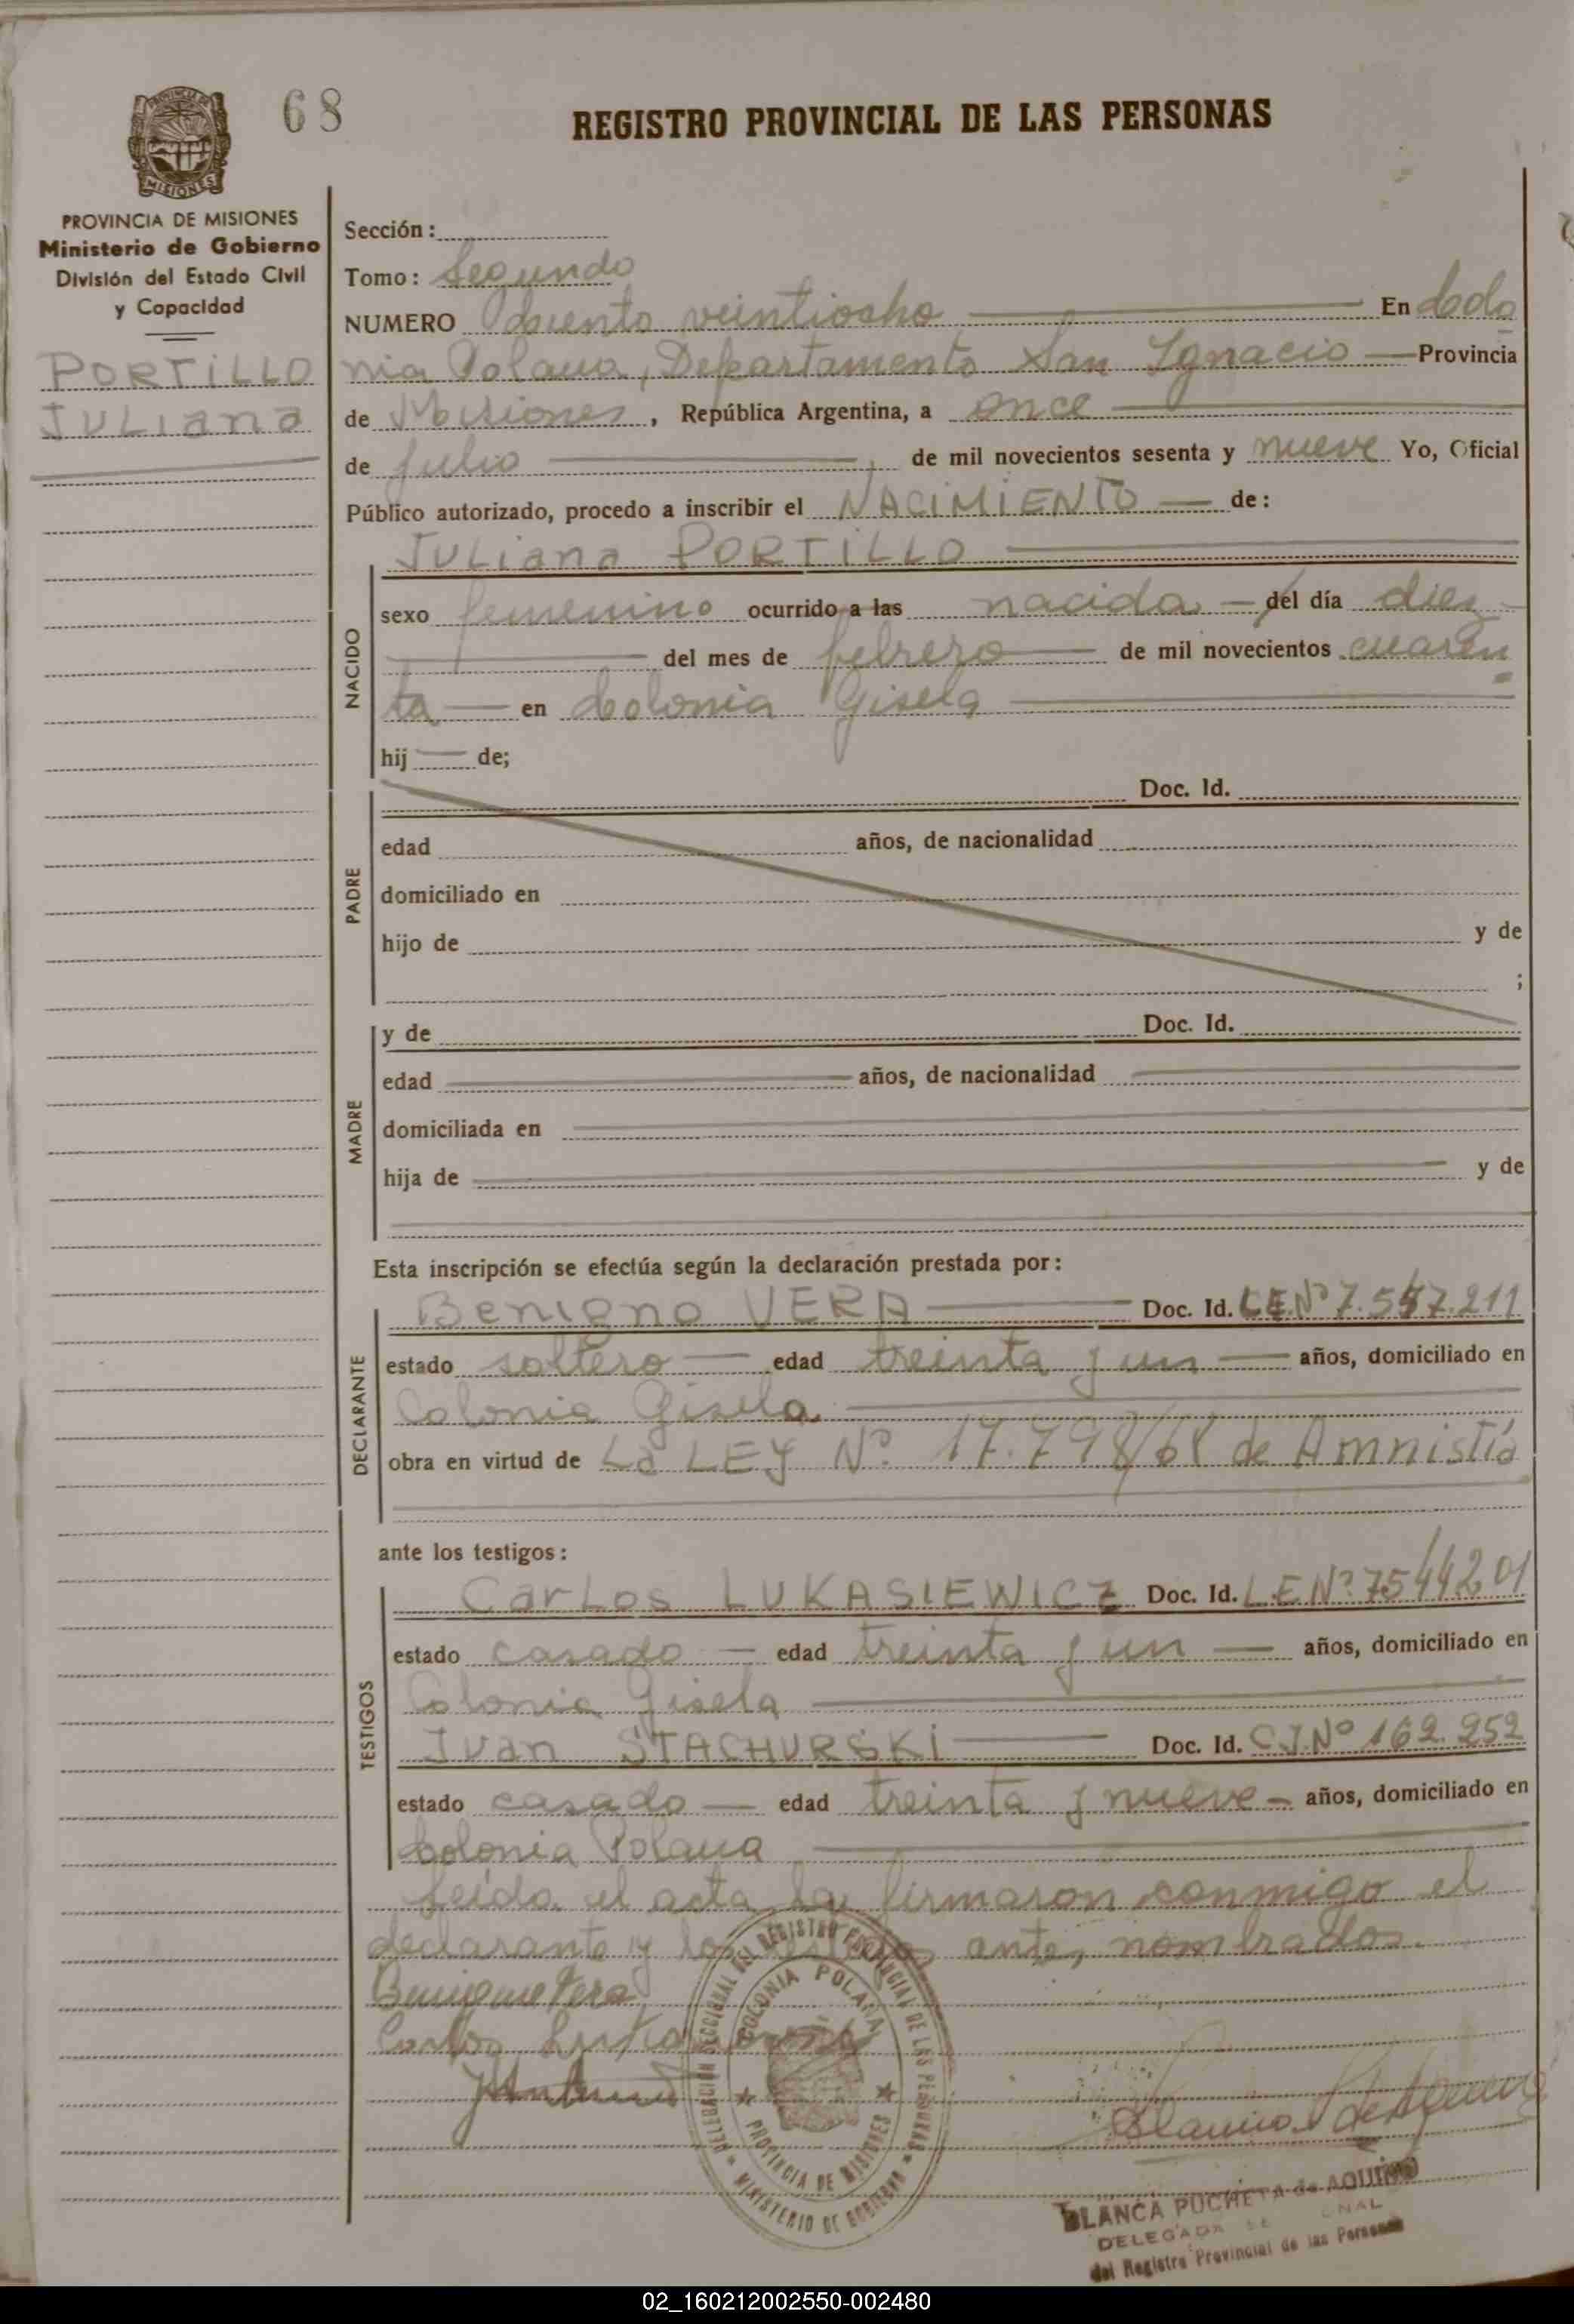 68
REGISTRO PROVINCIAL DE LAS PERSONAS
MISIONES
PROVINCIA DE MISIONES
Ministerio de Gobierno
División del Estado Civil
y Capacidad
PORTILLO
JULIANA
Sección:
Tomo: Segundo
NUMERO Ciento veintiocho En Colo
nia Polana, Departamento San Ignacio Provincia
de Misiones, República Argentina, a once
de julio, de mil novecientos sesenta y nueve Yo, Oficial
Público autorizado, procedo a inscribir el NACIMIENTO de:
Juliana PORTILLO
NACIDO
sexo femenino ocurrido a las nacida del día diez
del mes de febrero de mil novecientos cuaren
ta en Colonia Gisela
hij de;
PADRE
Doc. Id.
edad años, de nacionalidad
domiciliado en
hijo de y de
;
MADRE
y de Doc. Id.
edad años, de nacionalidad
domiciliada en
hija de y de
Esta inscripción se efectúa según la declaración prestada por:
DECLARANTE
Benigno VERA Doc. Id. L.E.Nº 7.547.211
estado soltero edad treinta y un años, domiciliado en
Colonia Gisela
obra en virtud de La LEY Nº 17.798/68 de Amnistía
ante los testigos:
TESTIGOS
Carlos LUKASIEWICZ Doc. Id. L.E.Nº 7544201
estado casado edad treinta y un años, domiciliado en
Colonia Gisela
Ivan STACHURSKI Doc. Id. C.I.Nº 162.252
estado casado edad treinta y nueve años, domiciliado en
Colonia Polana
Leída el acta la firmaron conmigo el
declarante y los testigos ante, nombrados.
Benigno Vera
Carlos
DELEGACIÓN SECCIONAL DEL REGISTRO PROVINCIAL DE LAS PERSONAS
COLONIA POLANA
PROVINCIA DE MISIONES
MINISTERIO DE GOBIERNO
Blanca de Aquino
BLANCA PUCHETA de AQUINO
DELEGADA
del Registro Provincial de las Personas
02_160212002550-002480